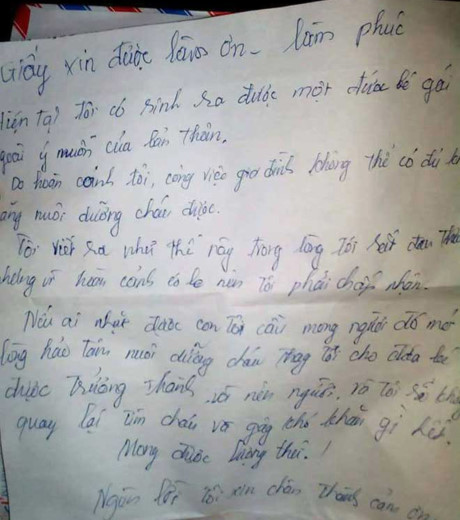 Giấy xin được làm ơn - làm phúc
Hiện tại tôi có sinh ra được một đứa bé gái
ngoài ý muốn của bản thân.
Do hoàn cảnh tôi, công việc gia đình không thể có đủ
năng nuôi dưỡng cháu được.
Tôi viết ra như thế này trong lòng tôi rất đau
nhưng vì hoàn cảnh éo le nên tôi phải chấp nhận.
Nếu ai nhặt được con tôi cầu mong người đó mở
lòng hảo tâm nuôi dưỡng cháu thay tôi cho đứa bé
được trưởng thành và nên người, và tôi sẽ không
quay lại tìm cháu và gây khó khăn gì hết.
Mong được lượng thứ.!
Ngàn lần tôi xin chân thành cảm ơn